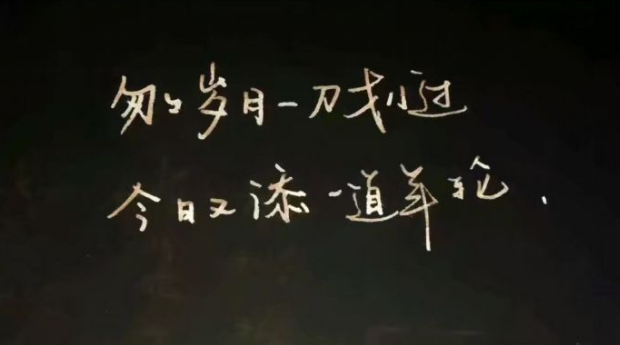 匆匆岁月一刀划过
今日又添一道年轮.